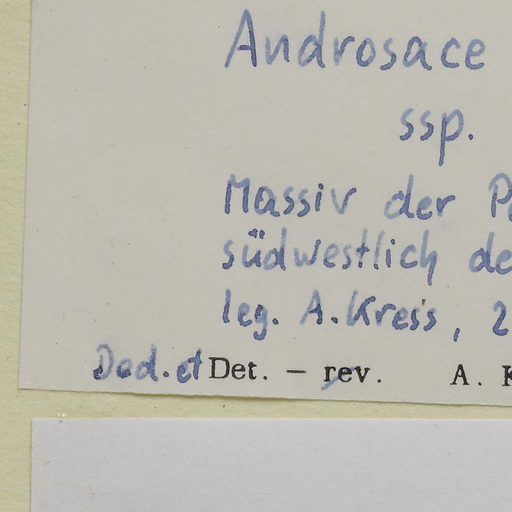 Androsace
ssp.
Massiv der
südwestlich de
leg. A. Kress, 2
Ded. et Det. – rev. A. K